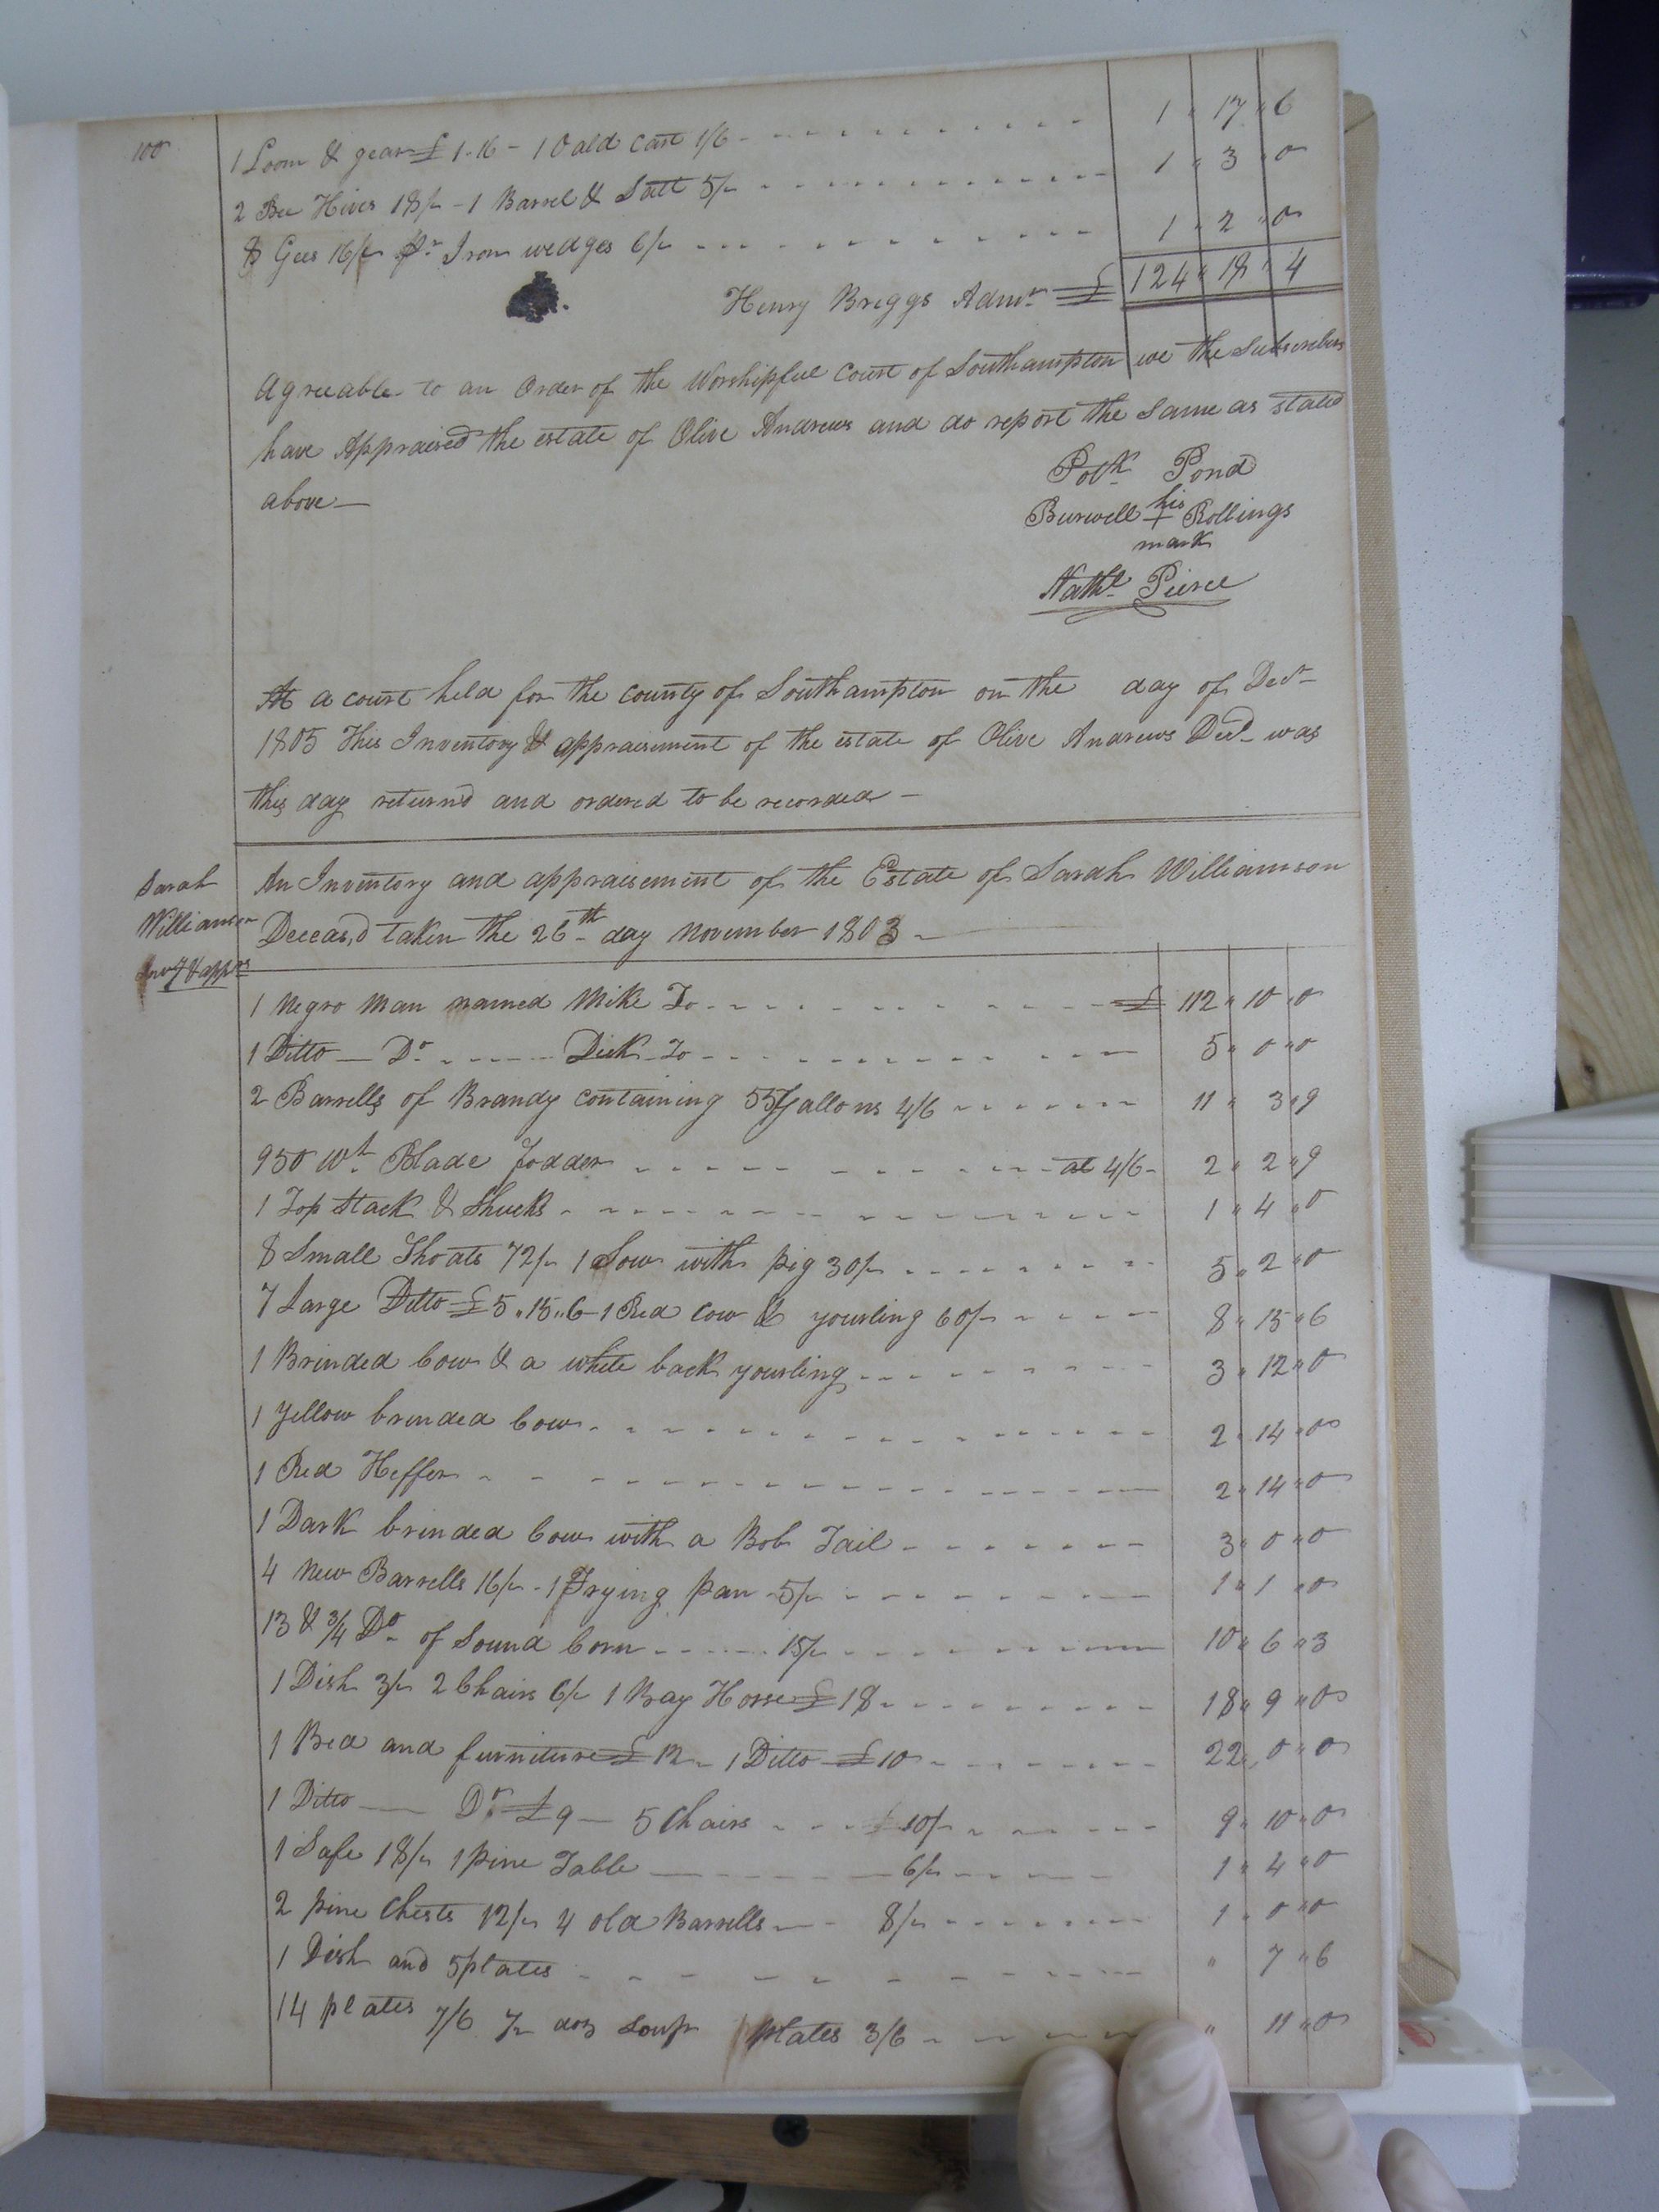 100
1 Loom & gear £ 1.16 - 1 old cart 1/6 1 " 17 " 6
2 Bee Hives 18/ - 1 Barrel & Salt 5/ 1 " 3 " 0
8 Gees 16/ pr. Iron wedges 6/ 1 " 2 " 0
Henry Briggs Admr. £ 124 " 18 " 4
Agreeable to an Order of the Worshipful Court of Southampton we the Subscribers
have Appraised the estate of Olive Andrews and do report the Same as stated
above —
Pond
Burwell his + Rollings
mark
Nathl. Pierce
At a court held for the county of Southampton on the day of Decr.
1805 This Inventory & appraisement of the estate of Olive Andrews Decd. was
this day returnd and ordered to be recorded —
Sarah
Williamson
Invy & appt
An Inventory and appraisement of the Estate of Sarah Williamson
Deceas,d taken the 26th day November 1803 -
1 Negro Man named Mike To £ 112 " 10 " 0
1 Ditto — Do. Dick To 5 " 0 " 0
2 Barrells of Brandy containing 55 Gallons 4/6 11 " 3 " 9
950 wt. Blade Fodder at 4/6 - 2 " 2 " 9
1 Top Stack & Shucks 1 " 4 " 0
8 Small Shoats 72/ 1 Sow with pig 30/ 5 " 2 " 0
7 Large Ditto £ 5 " 15 " 6 - 1 Red Cow & yourling 60/ 8 " 15 " 6
1 Brinded Cow & a white back yourling 3 " 12 " 0
1 Yellow brinded Cow 2 " 14 " 0
1 Red Heffer 2 " 14 " 0
1 Dark brinded Cow with a Bob Tail 3 " 0 " 0
4 New Barrells 16/ - 1 Frying pan 5/ 1 " 1 " 0
13 & 3/4 Do. of Sound Corn 15/ 10 " 6 " 3
1 Dish 3/ 2 Chairs 6/ 1 Bay Horse £ 18 18 " 9 " 0
1 Bed and furniture £ 12 - 1 Ditto £ 10 22 " 0 " 0
1 Ditto — Do. £ 9 — 5 Chairs 10/ 9 " 10 " 0
1 Safe 18/ 1 pine Table 6/ 1 " 4 " 0
2 pine Chests 12/ 4 old Barrells 8/ 1 " 0 " 0
1 Dish and 5 plates " 7 " 6
14 plates 7/6 doz Soup plates 3/6 " 11 " 0